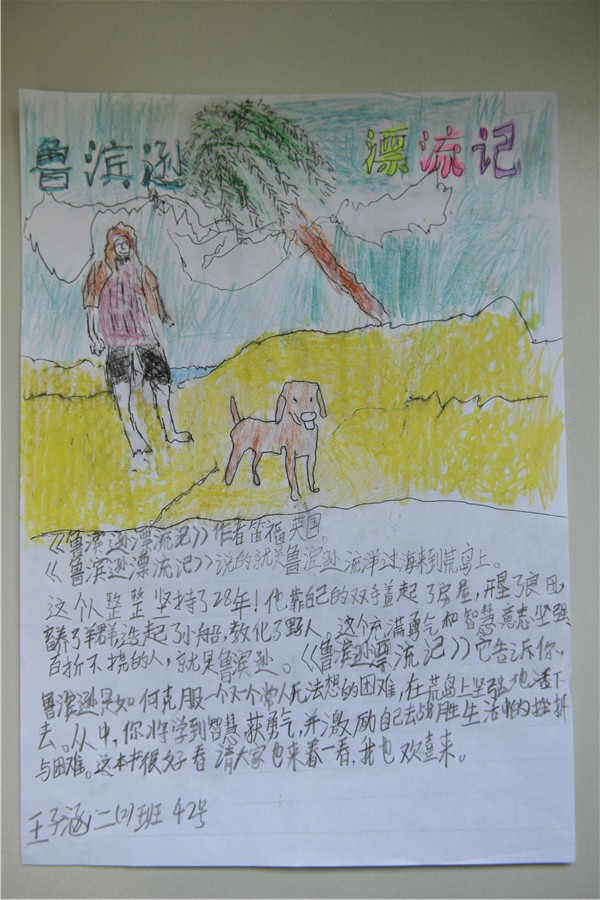 鲁滨逊 漂流记
《鲁滨逊漂流记》作者笛福 英国。
《鲁滨逊漂流记》说的就是鲁滨逊流洋过海来到荒岛上。
这个人整整坚持了28年！他靠自己的双手盖起了房屋，开垦了良田，
畜养了羊群，造起了小船，教化了野人，这个充满勇气和智慧意志坚强
百折不挠的人，就是鲁滨逊。《鲁滨逊漂流记》它告诉你，
鲁滨逊是如何克服一个又个常人无法想的困难，在荒岛上坚强地活下
去。从中，你将学到智慧获勇气，并激励自己去战胜生活中的挫折
与困难。这本书很好看 请大家也来看一看，我也欢喜来。
王子涵 二(2)班 42号